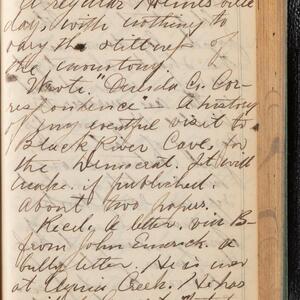 A regular Holmesville
day, with nothing to
vary the stillness of
the monotony.
Wrote "Oneida Co. Cor-
respondence" - A history
of my eventful visit to
Black River Cave, for
the Democrat. It will
make, if published,
about two pages.
Recd. a letter, via B-
from John Emerick. a
bully letter. He is now
at Elyria, Creek. He has